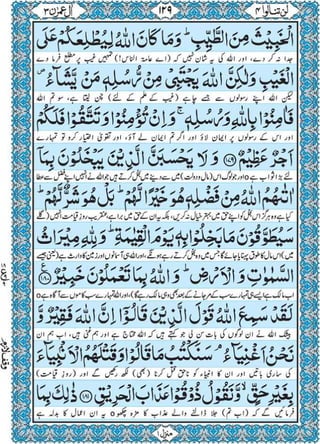 لن تنالوا ۴ ۱۲۹ اٰل عمرٰن ۳
الْخَبِيْثَ مِنَ الطَّيِّبِ ؕ وَمَا كَانَ اللّٰهُ لِيُطْلِعَكُمْ عَلَى
جدا نہ کر دے، اور اللہ کی یہ شان نہیں کہ (اے عامۃ الناس!) تمہیں غیب پر مطلع فرما دے
الْغَيْبِ وَلٰكِنَّ اللّٰهَ يَجْتَبِيْ مِنْ رُّسُلِهٖ مَنْ يَّشَآءُ ۪
لیکن اللہ اپنے رسولوں سے جسے چاہے (غیب کے علم کے لئے) چن لیتا ہے، سو تم اللہ
فَاٰمِنُوْا بِاللّٰهِ وَرُسُلِهٖ ۚ وَاِنْ تُؤْمِنُوْا وَتَتَّقُوْا فَلَكُمْ
اور اس کے رسولوں پر ایمان لاؤ اور اگر تم ایمان لے آؤ، اور تقویٰ اختیار کرو تو تمہارے
اَجْرٌ عَظِيْمٌ ﴿۱۷۹﴾ وَلَا يَحْسَبَنَّ الَّذِيْنَ يَبْخَلُوْنَ بِمَآ
لئے بڑا ثواب ہے o اور جو لوگ اس (مال و دولت) میں سے دینے میں بخل کرتے ہیں جو اللہ نے انہیں اپنے فضل سے عطا
اٰتٰىهُمُ اللّٰهُ مِنْ فَضْلِهٖ هُوَ خَيْرًا لَّهُمْ ؕ بَلْ هُوَ شَرٌّ لَّهُمْ ؕ
کیا ہے وہ ہرگز اس بخل کو اپنے حق میں بہتر خیال نہ کریں، بلکہ یہ ان کے حق میں برا ہے، عنقریب روز قیامت انہیں (گلے
سَيُطَوَّقُوْنَ مَا بَخِلُوْا بِهٖ يَوْمَ الْقِيٰمَةِ ؕ وَلِلّٰهِ مِيْرَاثُ
میں) اس مال کا طوق پہنایا جائے گا جس میں وہ بخل کرتے رہے ہوں گے، اور اللہ ہی آسمانوں اور زمین کا وارث ہے (یعنی جیسے
السَّمٰوٰتِ وَالْاَرْضِ ؕ وَاللّٰهُ بِمَا تَعْمَلُوْنَ خَبِيْرٌ ﴿۱۸۰﴾
اب مالک ہے ایسے ہی تمہارے سب کے مر جانے کے بعد بھی وہی مالک رہے گا)، اور اللہ تمہارے سب کاموں سے آگاہ ہے o
لَقَدْ سَمِعَ اللّٰهُ قَوْلَ الَّذِيْنَ قَالُوْٓا اِنَّ اللّٰهَ فَقِيْرٌ وَّ
بیشک اللہ نے ان لوگوں کی بات سن لی جو کہتے ہیں کہ اللہ محتاج ہے اور ہم غنی ہیں، اب ہم ان
نَحْنُ اَغْنِيَآءُ ۘ سَنَكْتُبُ مَا قَالُوْا وَقَتْلَهُمُ الْاَنْۢبِيَآءَ
کی ساری باتیں اور ان کا انبیاء کو ناحق قتل کرنا (بھی) لکھ رکھیں گے، اور (روز قیامت)
بِغَيْرِ حَقٍّ ۙ وَّنَقُوْلُ ذُوْقُوْا عَذَابَ الْحَرِيْقِ ﴿۱۸۱﴾ ذٰلِكَ بِمَا
فرمائیں گے کہ (اب تم) جلا ڈالنے والے عذاب کا مزہ چکھو o یہ ان اعمال کا بدلہ ہے
منزل